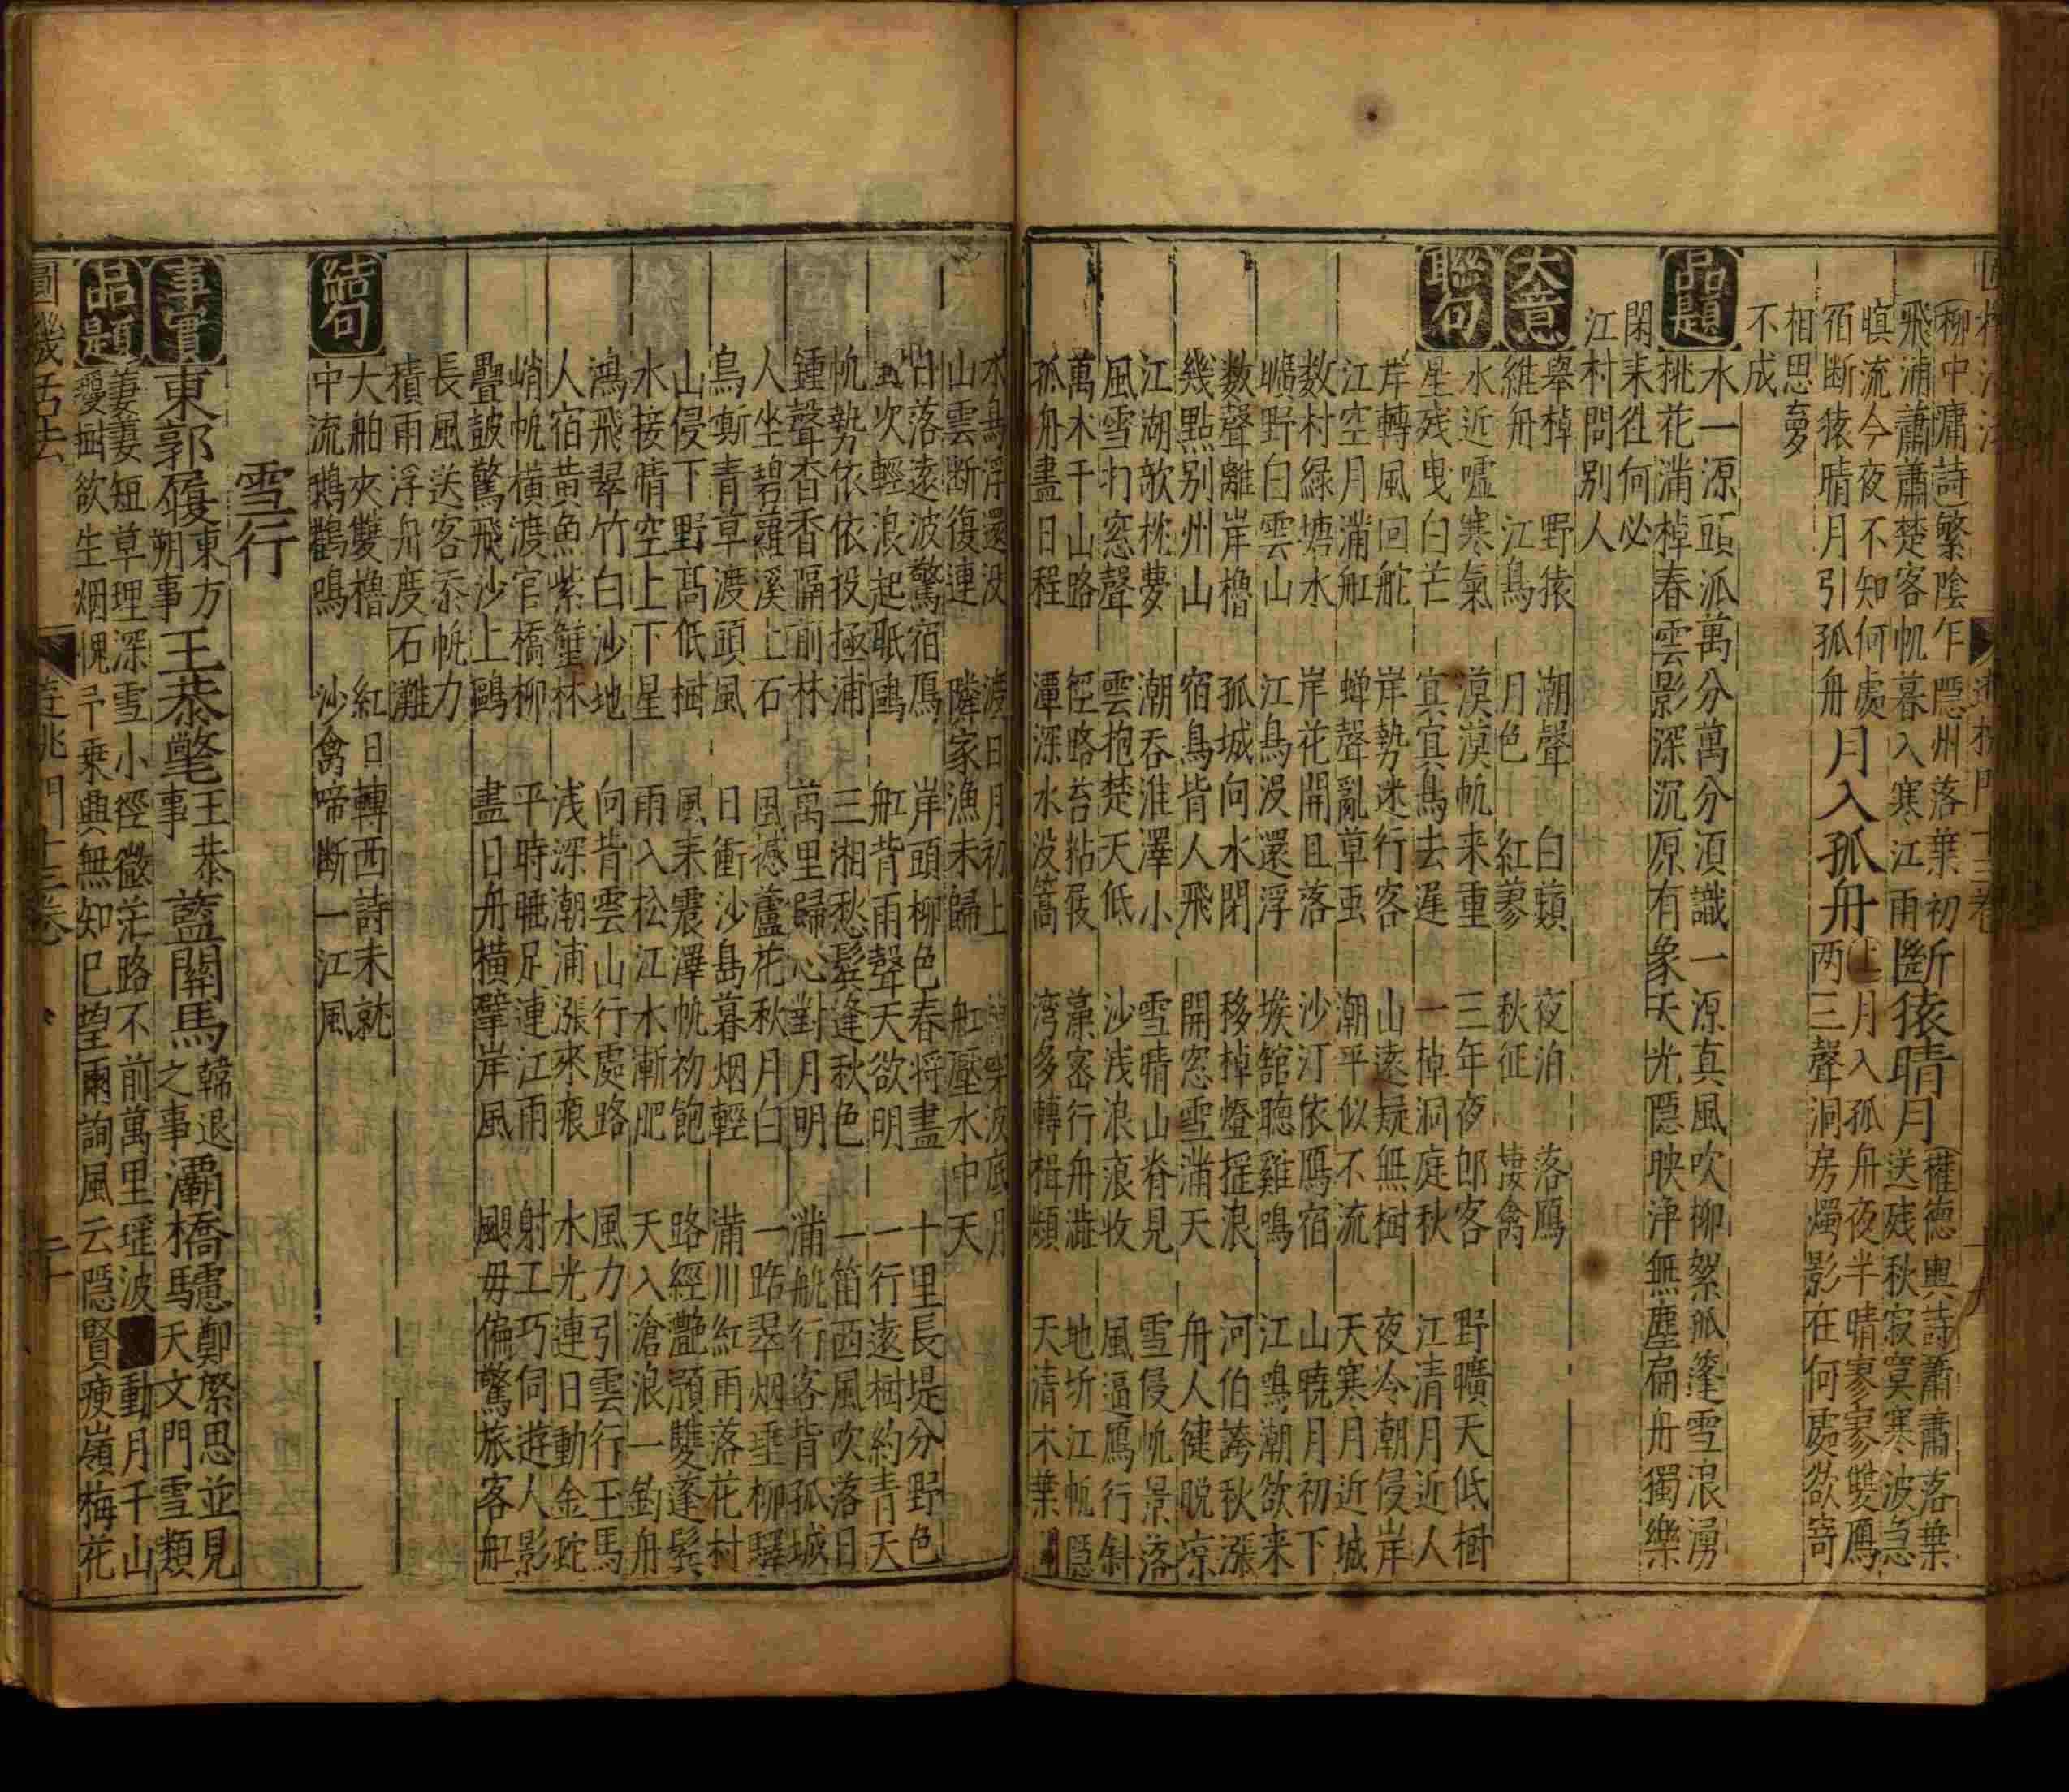 柳中庸詩繁陰乍隱州落葉初
飛浦蕭蕭楚客帆暮入寒江雨
斷猿晴月
權德輿詩蕭蕭落葉
送残秋寂寞寒波急
暝流今夜不知何處
宿断猿晴月引孤舟
月入孤舟
上月入孤舟夜半晴寥寥雙鴈
两三聲洞房燭影在何處欲寄
相思夢
不成
品題
水一源頭派萬分萬分須識一源真風吹柳絮孤篷雪浪湧
桃花滿棹春雲影深沉原有象天光隱映浄無塵扁舟獨樂
閑来徃何必
江村問別人
大意
舉棹 野猿 潮聲 白蘋 夜泊 落鴈
維舟 江鳥 月色 紅蓼 秋征 棲禽
聯句
水近嘘寒氣 漠漠帆来重 三年夜郎客 野曠天低樹
星残曳白芒 冥冥鳥去遲 一棹洞庭秋 江清月近人
岸轉風回舵 岸勢迷行客 山遠疑無樹 夜冷潮侵岸
江空月滿舡 蝉聲亂草虫 潮平似不流 天寒月近城
数村緑塘水 岸花開且落 沙汀依鴈宿 山暁月初下
曠野白雲山 江鳥没還浮 堠舘聴雞鳴 江鳴潮欲来
数聲離岸櫓 孤城向水閉 移棹燈揺浪 河伯誇秋漲
幾點別州山 宿鳥皆人飛 開窓雪滿天 舟人健脱凉
江湖欹枕夢 潮吞淮澤小 雪晴山脊見 雪侵帆景落
風雪打窓聲 雲抱楚天低 沙浅浪痕收 風逼鴈行斜
萬木千山路 徑略苔粘屐 藻密行舟澁 地圻江帆隠
孤舟盡日程 潭深水没篙 湾多轉楫頻 天清木葉
水鳥浮還没 渡日月初上 波底月
山雲断復連 隣家漁未歸 舡壓水中天
日落遠波驚宿鴈 岸頭柳色春将盡 十里長堤分野色
吹輕浪起眠鷗 舡背雨聲天欲明 一行遠樹約青天
帆勢依依投極浦 三湘愁鬂逢秋色 一笛西風吹落日
鍾聲杳杳隔前林 萬里歸心對月明 滿舩行客背孤城
人坐碧蘿溪上石 風撼蘆花秋月白 一路翠烟垂柳驛
鳥斬青草渡頭風 日衝沙島暮烟輕 滿川紅雨落花村
山侵下野髙低樹 風来震澤帆初飽 路經灔澦雙蓬鬂
水接晴空上下星 雨入松江水漸肥 天入滄浪一釣舟
鴻飛翠竹白沙地 向背雲山行處路 風力引雲行玉馬
人宿黄魚紫蟹林 浅深潮浦漲來痕 水光連日動金蛇
峭帆橫渡官橋柳 平時睡足連江雨 射工巧伺遊人影
疊鼓驚飛沙上鷗 盡日舟橫擘岸風 颶毋偏驚旅客舡
長風送客添帆力
積雨浮舟度石灘
結句
大舶夾雙櫓 紅日轉西詩未就
中流鵝鸛鳴 沙禽啼断一江風
雪行
事實
東郭履
東方
朔事
王恭氅
王恭
事
藍關馬
韓退
之事
灞橋驢
鄭綮思並見
天文門雪類
品題
萋萋短草理深雪小徑微茫路不前萬里瑶波動月千山
欲生烟愧乎乗典無知巳望爾詢風云隠賢痩嶺梅花
圓機活法 遊眺門十三卷 二十